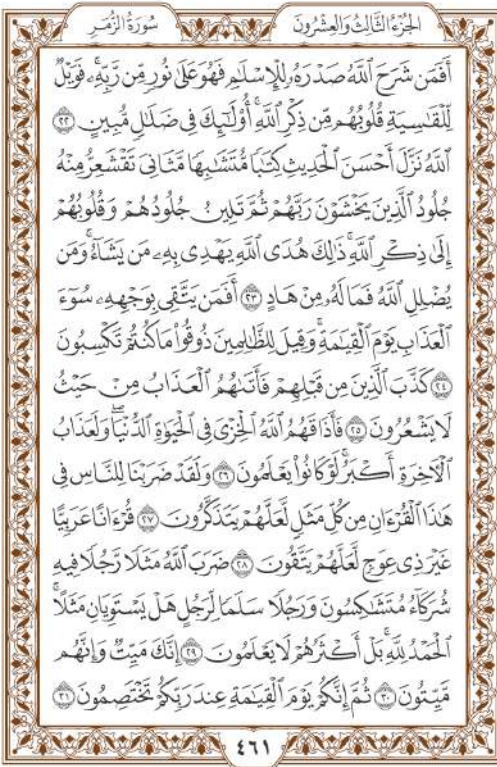 الجُزْءُ الثَّالِثُ وَالعِشْرُونَ سُورَةُ الزُّمَرِ
أَفَمَن شَرَحَ ٱللَّهُ صَدْرَهُۥ لِلْإِسْلَٰمِ فَهُوَ عَلَىٰ نُورٖ مِّن رَّبِّهِۦۚ فَوَيْلٞ
لِّلْقَٰسِيَةِ قُلُوبُهُم مِّن ذِكْرِ ٱللَّهِۚ أُوْلَٰٓئِكَ فِي ضَلَٰلٖ مُّبِينٍ ٢٢
ٱللَّهُ نَزَّلَ أَحْسَنَ ٱلْحَدِيثِ كِتَٰبٗا مُّتَشَٰبِهٗا مَّثَانِيَ تَقْشَعِرُّ مِنْهُ
جُلُودُ ٱلَّذِينَ يَخْشَوْنَ رَبَّهُمْ ثُمَّ تَلِينُ جُلُودُهُمْ وَقُلُوبُهُمْ
إِلَىٰ ذِكْرِ ٱللَّهِۚ ذَٰلِكَ هُدَى ٱللَّهِ يَهْدِي بِهِۦ مَن يَشَآءُۚ وَمَن
يُضْلِلِ ٱللَّهُ فَمَا لَهُۥ مِنْ هَادٍ ٢٣ أَفَمَن يَتَّقِي بِوَجْهِهِۦ سُوٓءَ
ٱلْعَذَابِ يَوْمَ ٱلْقِيَٰمَةِۚ وَقِيلَ لِلظَّٰلِمِينَ ذُوقُواْ مَا كُنتُمْ تَكْسِبُونَ
٢٤ كَذَّبَ ٱلَّذِينَ مِن قَبْلِهِمْ فَأَتَىٰهُمُ ٱلْعَذَابُ مِنْ حَيْثُ
لَا يَشْعُرُونَ ٢٥ فَأَذَاقَهُمُ ٱللَّهُ ٱلْخِزْيَ فِي ٱلْحَيَوٰةِ ٱلدُّنْيَاۖ وَلَعَذَابُ
ٱلْأٓخِرَةِ أَكْبَرُۚ لَوْ كَانُواْ يَعْلَمُونَ ٢٦ وَلَقَدْ ضَرَبْنَا لِلنَّاسِ فِي
هَٰذَا ٱلْقُرْءَانِ مِن كُلِّ مَثَلٖ لَّعَلَّهُمْ يَتَذَكَّرُونَ ٢٧ قُرْءَانًا عَرَبِيًّا
غَيْرَ ذِي عِوَجٖ لَّعَلَّهُمْ يَتَّقُونَ ٢٨ ضَرَبَ ٱللَّهُ مَثَلٗا رَّجُلٗا فِيهِ
شُرَكَآءُ مُتَشَٰكِسُونَ وَرَجُلٗا سَلَمٗا لِّرَجُلٍ هَلْ يَسْتَوِيَانِ مَثَلًاۚ
ٱلْحَمْدُ لِلَّهِۚ بَلْ أَكْثَرُهُمْ لَا يَعْلَمُونَ ٢٩ إِنَّكَ مَيِّتٞ وَإِنَّهُم
مَّيِّتُونَ ٣٠ ثُمَّ إِنَّكُمْ يَوْمَ ٱلْقِيَٰمَةِ عِندَ رَبِّكُمْ تَخْتَصِمُونَ ٣١
٤٦١